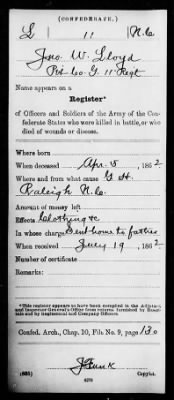 (CONFEDERATE.)
L 11 N.C.
Jno W. Lloyd
Pvt Co. G. 11" Regt
Name appears on a
Register*
of Officers and Soldiers of the Army of the Con-
federate States who were killed in battle, or who
died of wounds or disease.
Where born
When deceased Apr. 5, 1862
Where and from what cause G. H.
Raleigh N.C.
Amount of money left
Effects clothing &c
In whose charge Sent home to father
When received July 19, 1862
Number of certificate
Remarks:
*This register appears to have been compiled in the Adjutant
and Inspector General's Office from returns furnished by Hospi-
tals and by Regimental and Company Officers.
Confed. Arch., Chap. 10, File No. 9, page 130
J Funk
(635) Copyist.